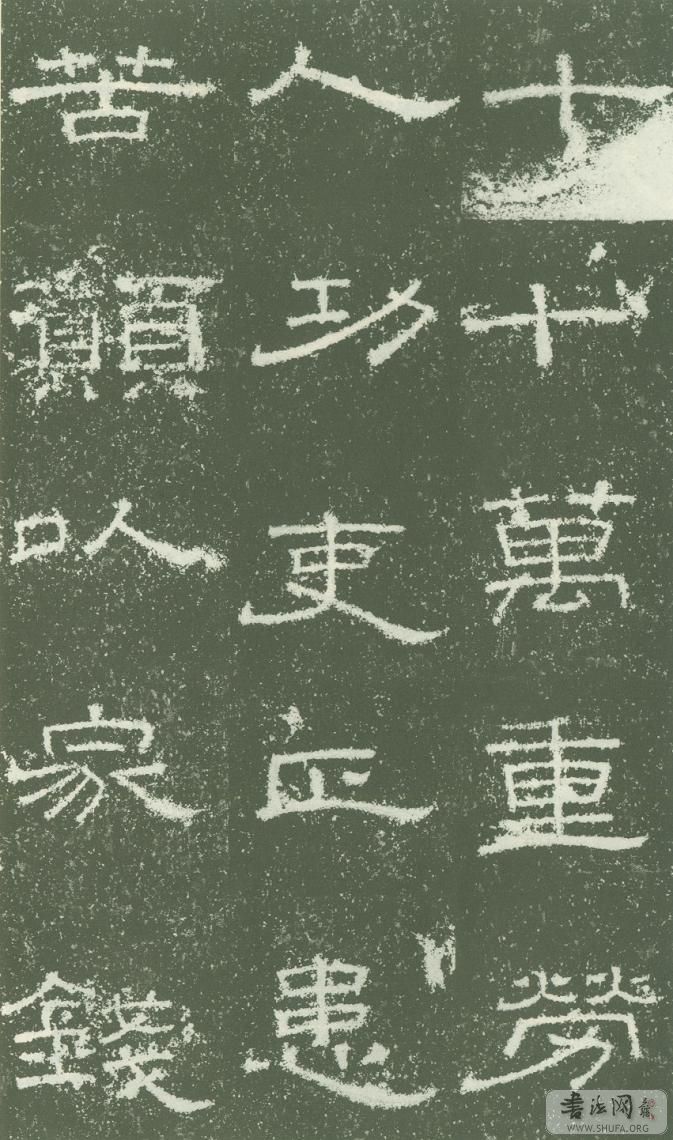 七十萬重勞
人功吏正患
苦願以家錢
書法网
WWW.SHUFA.ORG